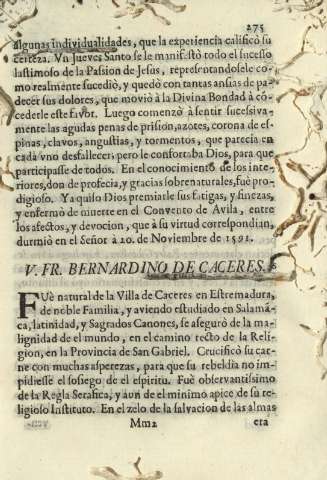 275
algunas individualidades, que la experiencia calificò su
certeza. Vn Jueves Santo se le manifestò todo el sucesso
lastimoso de la Passion de Jesus, representandosele co-
mo realmente sucediò, y quedò con tantas ansias de pa-
decer sus dolores, que moviò à la Divina Bondad à cô-
cederle este favor. Luego comenzò à sentir sucessiva-
mente las agudas penas de prision, azotes, corona de es-
pinas, clavos, angustias, y tormentos, que parecia en
cada vno desfallecer; pero le confortaba Dios, para que
participasse de todos. En el conocimiento de los inte-
riores, don de profecia, y gracias sobrenaturales, fuè pro-
digioso. Ya quiso Dios premiarle sus fatigas, y finezas,
y enfermò de muerte en el Convento de Avila, entre
los afectos, y devocion, que à su virtud correspondian,
durmiò en el Señor à 20. de Noviembre de 1591.
V. FR. BERNARDINO DE CACERES.
FUè natural de la Villa de Caceres en Estremadura,
de noble Familia, y aviendo estudiado en Salamã-
ca, latinidad, y Sagrados Canones, se asegurò de la ma-
lignidad de el mundo, en el camino recto de la Reli-
gion, en la Provincia de San Gabriel. Crucificò su car-
ne con muchas asperezas, para que su rebeldia no im-
pidiesse el sosiego de el espiritu. Fuè observantissimo
de la Regla Serafica, y aun de el minimo apice de su re-
ligioso Instituto. En el zelo de la salvacion de las almas
Mm2 era